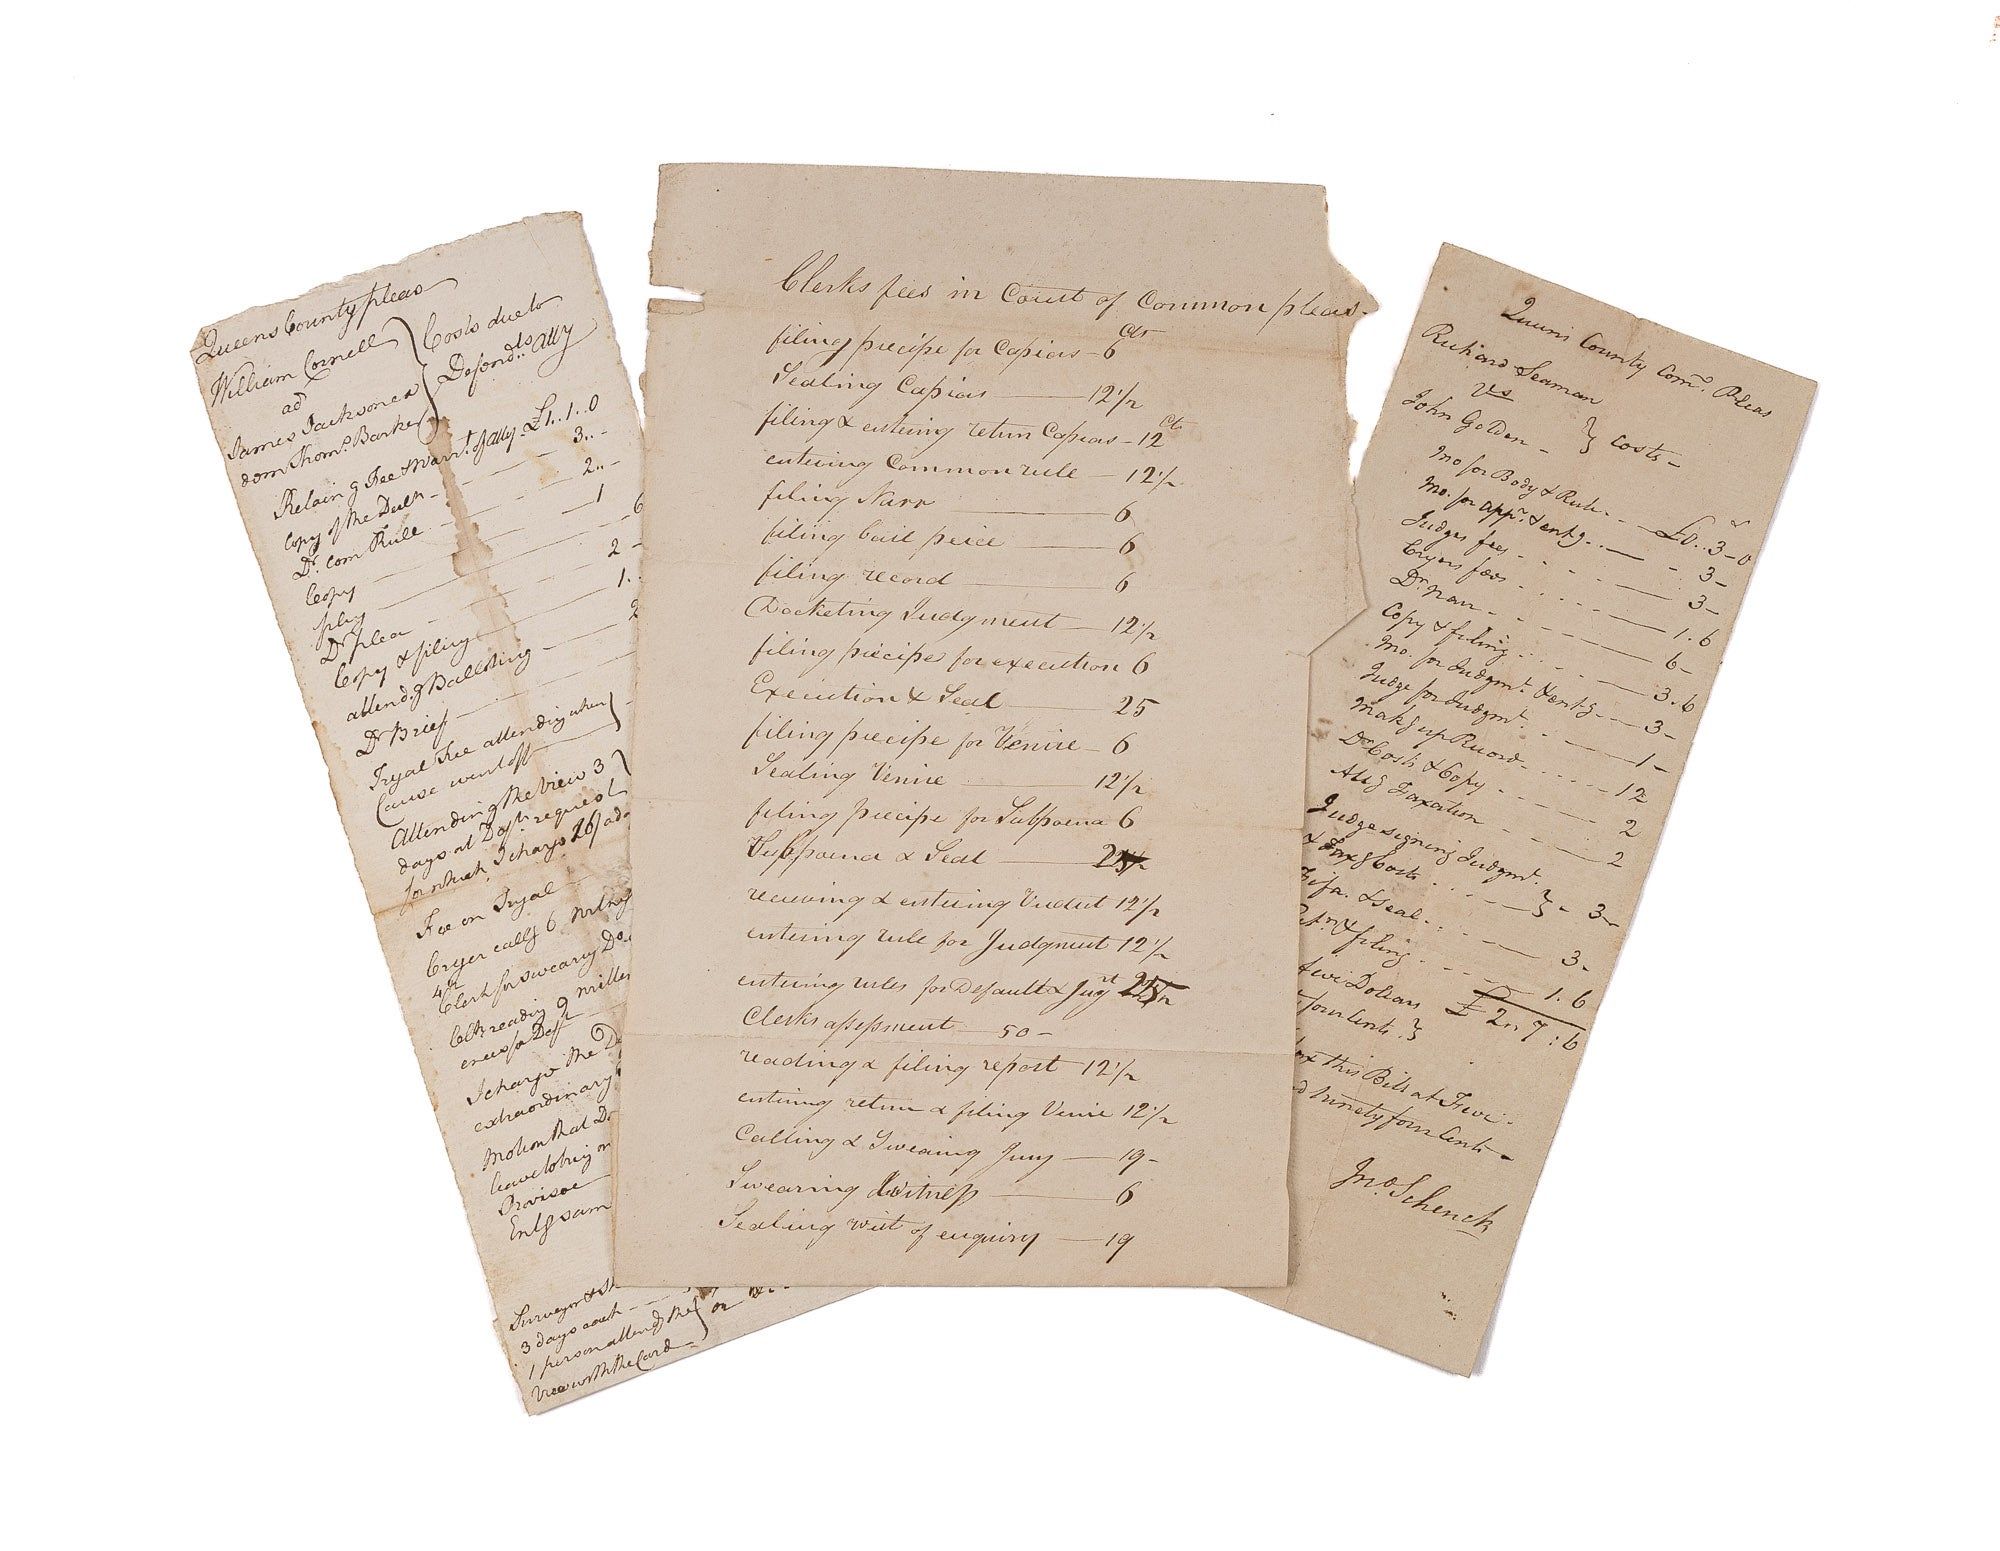 Queens County pleas
William Cornell
ad
James Jackson ex
dem Thoms. Barker
Costs due to
Defendts. atty
Retaing Fee & Warrt. of atty - £1..1..0
Copy of the Decln - 3..-
Dr. com Rule 2..-
Copy 1
plea 6
Dr. plea 2 -
Copy & filing 1..
attendg Balloting - 2
Dr Brief
Tryal Fee attending when
Cause went off
Attending the View 3
days at Defts request
for which I charge 16/ ad
Fee on Tryal
Cryer callg 6
Clerk for swearg Do
Clk reading 9
I charge the D
extraordinary
Motion that D
leave to bring on
Proviseo
Entg sam
Surveyor & Sh
3 days each
1 person attendg the
View with the Card -
Clerks fees in Court of Common pleas -
filing precipe for Capias - 6 cts
Sealing Capias 12 1/2
filing & entering return Capias - 12 Ct
entering Common rule - 12 1/2
filing Narr 6
filing bail peice 6
filing record 6
Docketing Judgment 12 1/2
filing precipe for execution 6
Execution & Seal 25
filing precipe for Venire - 6
Sealing Venire 12 1/2
filing precipe for Subpoena 6
Subpoena & Seal 25
receiving & entering Verdict 12 1/2
entering rule for Judgment 12 1/2
entering rules for Default & Jugt 25
Clerks assessment 50 -
reading & filing report 12 1/2
entering return & filing Venire 12 1/2
Calling & Swearing Jury 19 -
Swearing Witness 6
Sealing writ of enquiry 19
Queens County Comn. Pleas
Richard Seaman
vs
John Golden -
Costs -
Mo for Body & Rule - £0..3-0
Mo. for appe. & entg - 3 -
Judges fees - 3 -
Cryers fees 1.6
Dr. narr - 6 -
Copy & filing 3.6
Mo. for Judgmt. & entg 3 -
Judge for Judgmt. 1 -
Makg up Record 12
Dr Costs & Copy 2
Attg Taxation 2
Judge signing Judgmt.
& Taxg Costs - 3 -
Fifa. & Seal 3 -
& filing 1.6
Dollars £ 2" 7:6
four Cents
this Bill at Five
ninety four Cents -
Jno Schenck